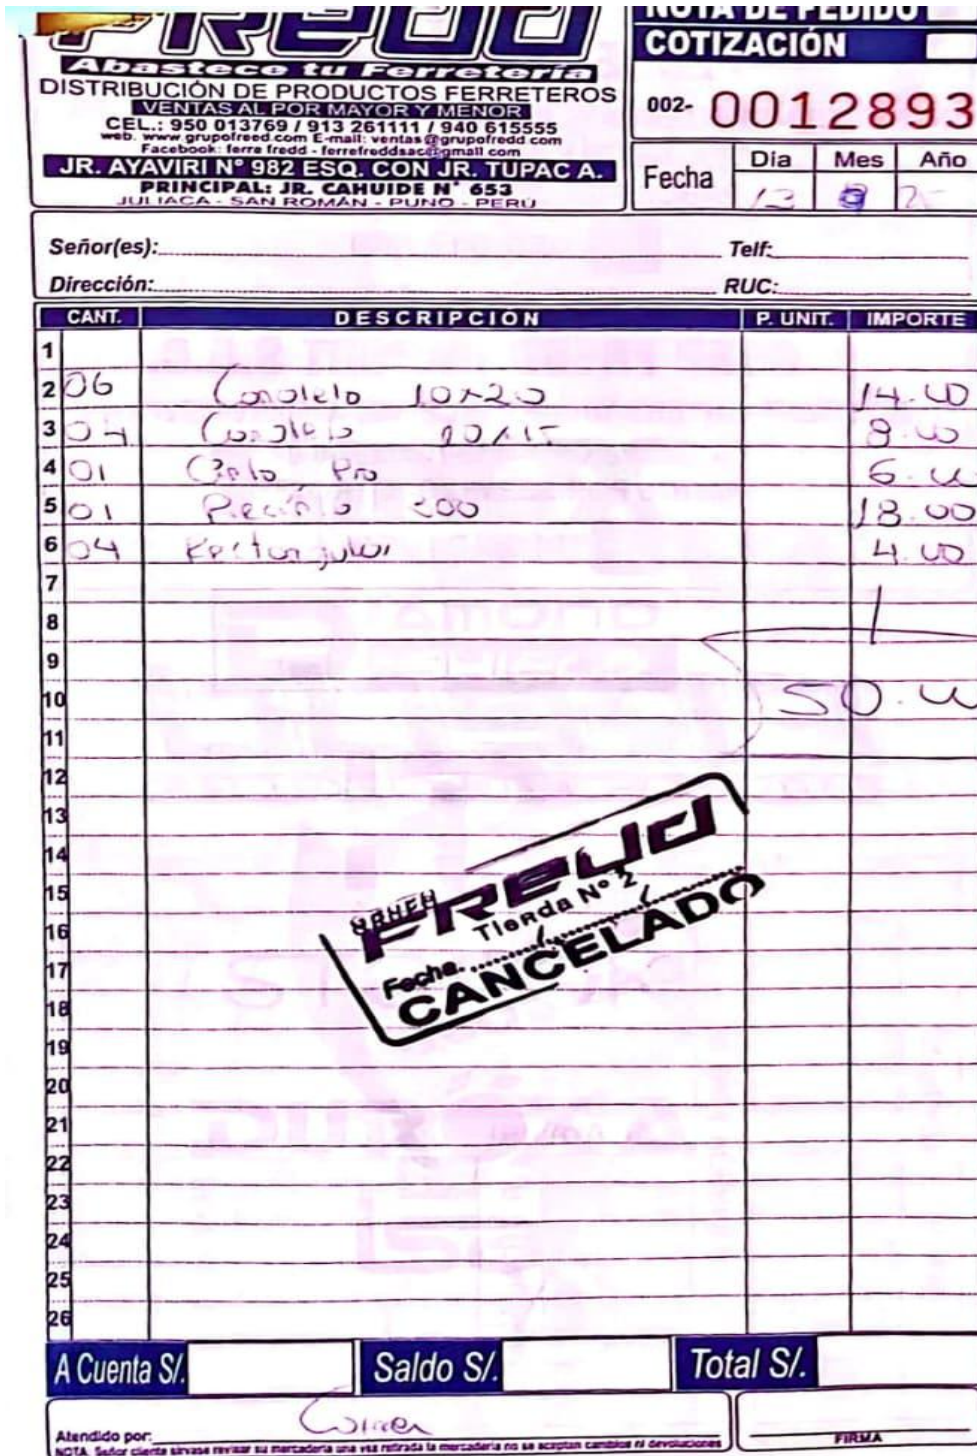 FREDD
NOTA DE PEDIDO
COTIZACIÓN
Abastece tu Ferretería
DISTRIBUCIÓN DE PRODUCTOS FERRETEROS
VENTAS AL POR MAYOR Y MENOR
CEL.: 950 013769 / 913 261111 / 940 615555
web. www.grupofreed.com E-mail: ventas@grupofredd.com
Facebook: ferre fredd - ferrefreddsac@gmail.com
JR. AYAVIRI N° 982 ESQ. CON JR. TUPAC A.
PRINCIPAL: JR. CAHUIDE N° 653
JULIACA - SAN ROMÁN - PUNO - PERÚ
002- 0012893
Fecha Dia Mes Año
Señor(es): Telf:
Dirección: RUC:
CANT. DESCRIPCIÓN P. UNIT. IMPORTE
1
2 06 10x20 14.00
3 04 10x15 8.00
4 01 Pro 6.00
5 01 Precinto 200 18.00
6 04 Rectangular 4.00
7
8
9
10 50.00
11
12
13
14
15
16
17
18
19
20
21
22
23
24
25
26
FREDD
Tienda N° 2
Fecha.
CANCELADO
A Cuenta S/. Saldo S/. Total S/.
Atendido por:
FIRMA
NOTA. Señor cliente sirvase revisar su mercadería una vez retirada la mercadería no se aceptan cambios ni devoluciones